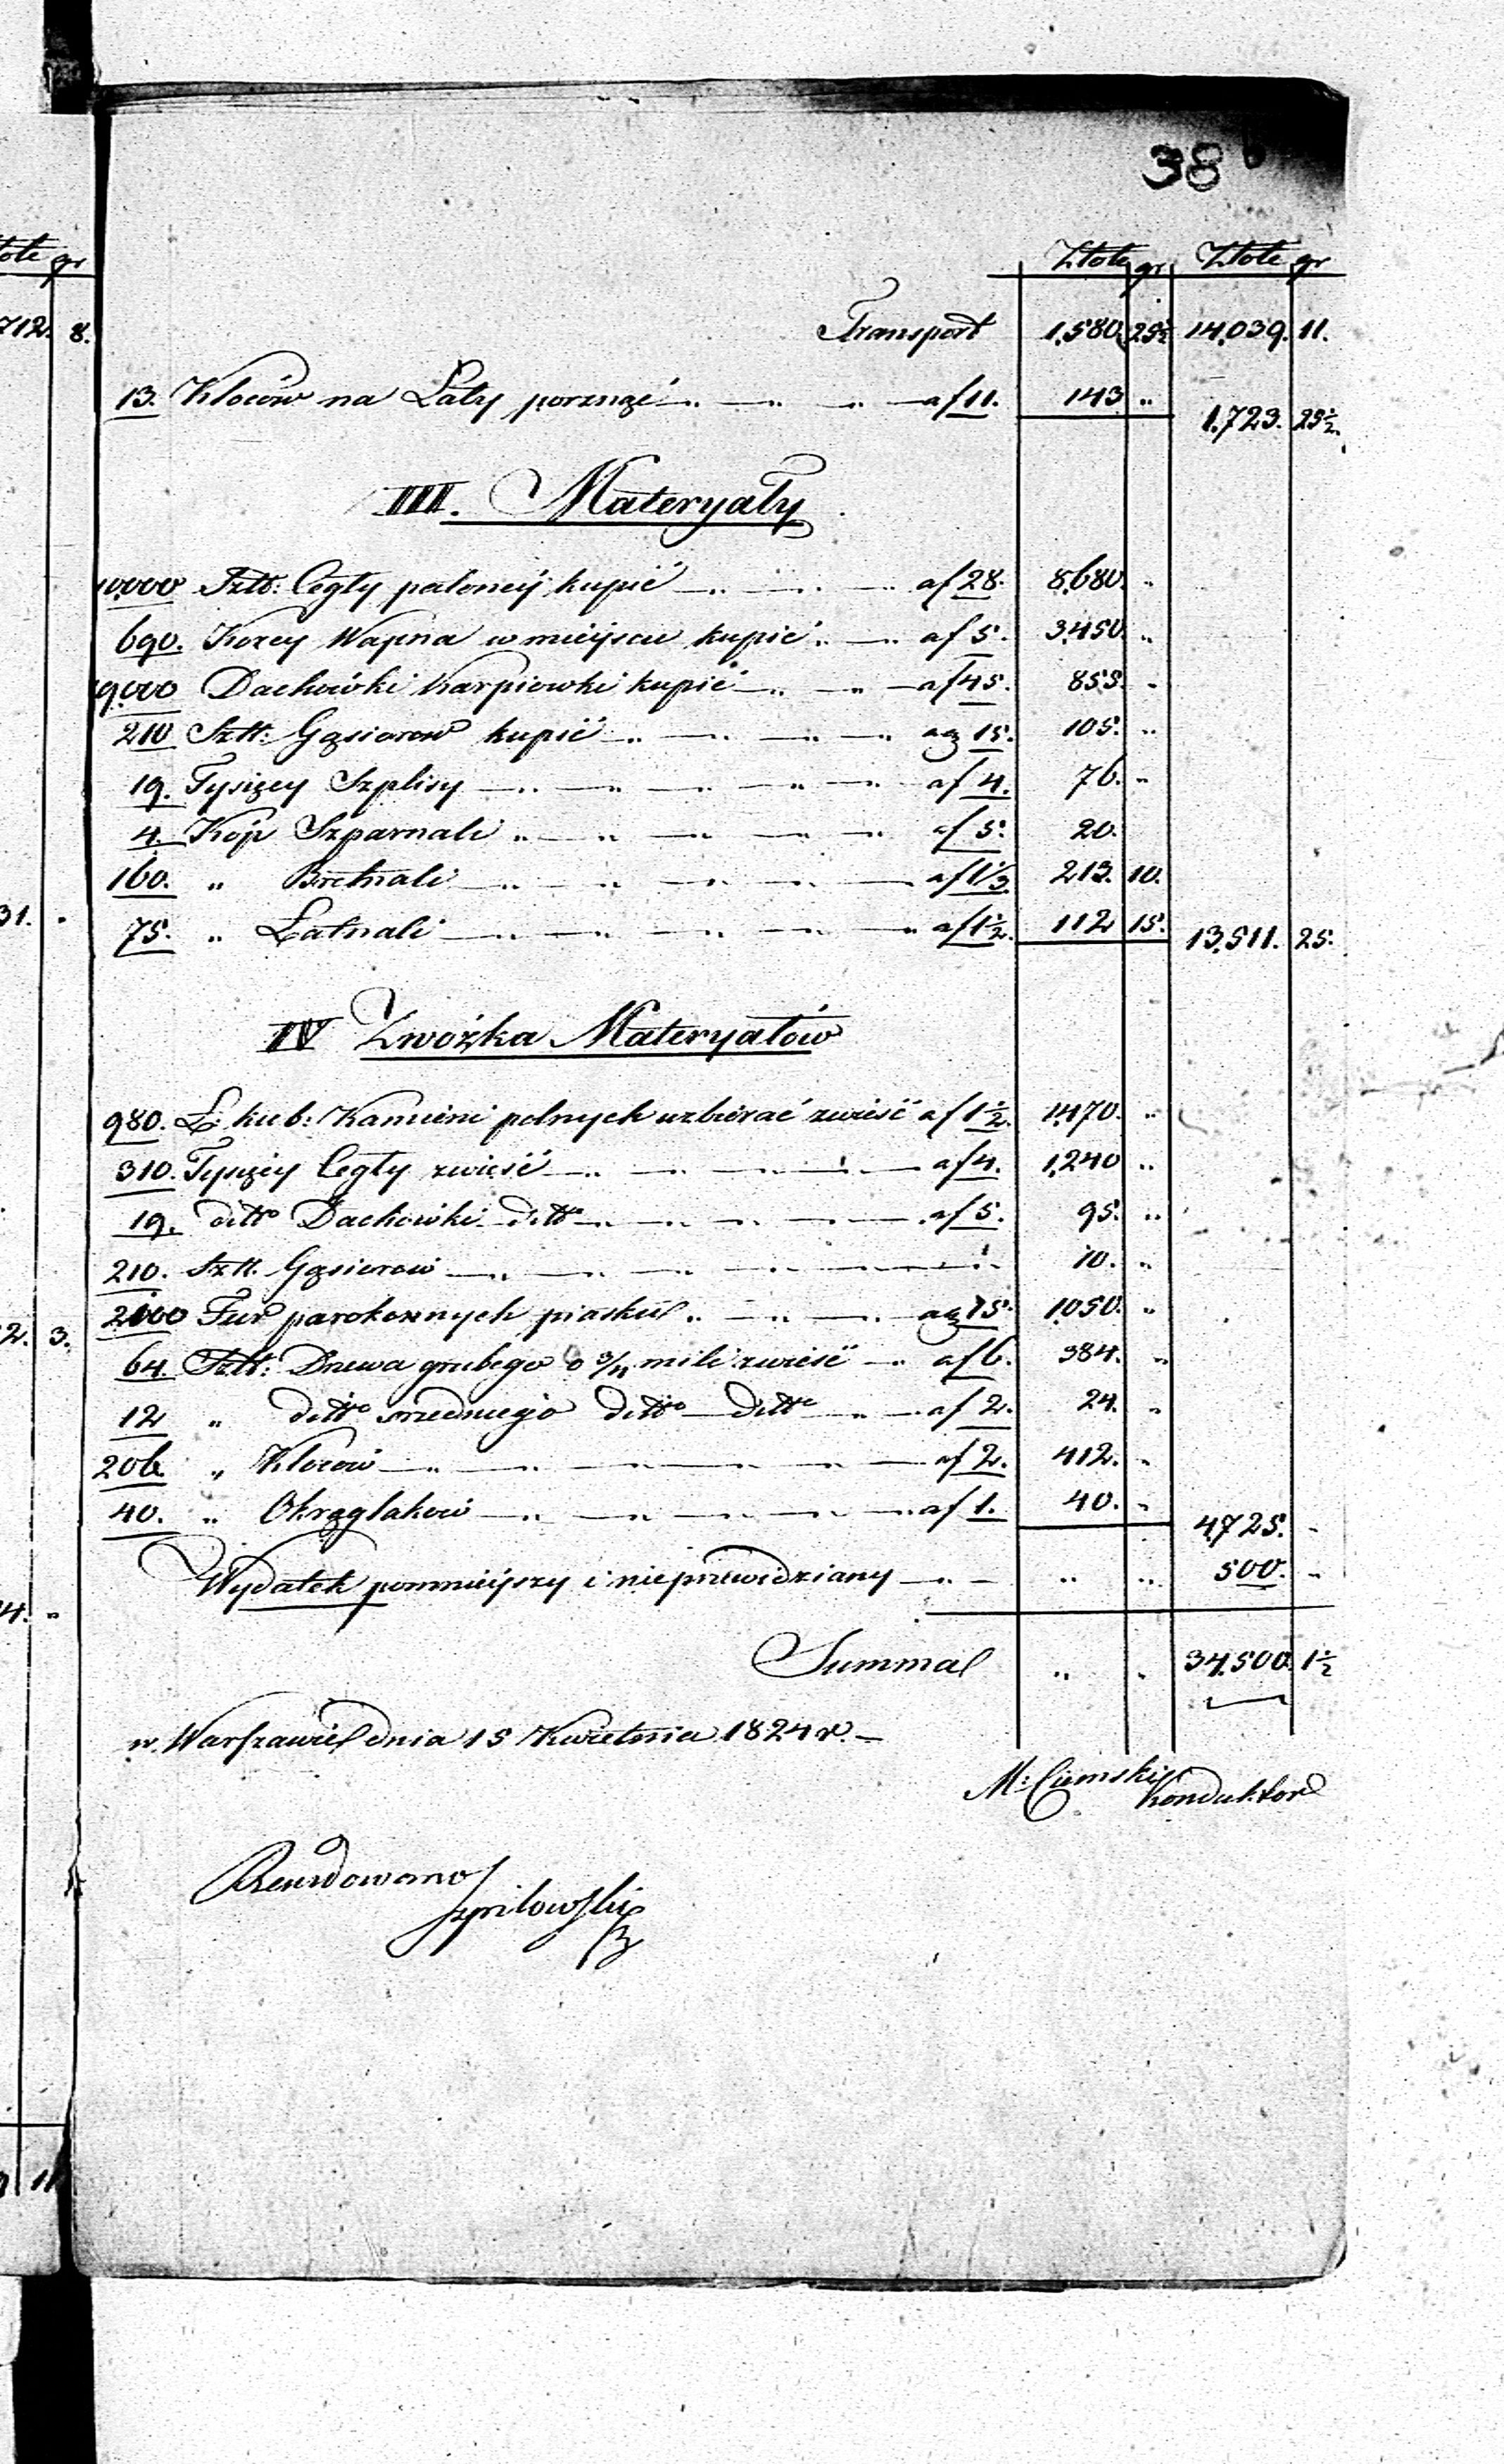 38
Złote gr Złote gr
Transport 1,580. 25½ 14,039. 11.
13. Kloców na Łaty porznąć af 11. 143 „
1.723. 25½.
III. Materyały
0,000 Sztk: Cegły paloney kupić af 28. 8,680. „
690. Korcy Wapna w mieyscu kupić af 5. 3,450. „
9,000 Dachówki karpiowki kupić af 45. 855. „
210 Sztk: Gąsiorow kupić ag 15. 105. „
19. Tysięcy Szplisy af 4. 76. „
4. Kóp Szparnali af 5. 20.
160. „ Bretnali af 1⅓ 213. 10.
75. „ Łatnali af 1½. 112 15.
13,511. 25.
IV Zwózka Materyałów
980. Ł: kub: Kamieni polnych uzbierać zwieść af 1½. 1,470. „
310. Tysięcy Cegły zwieść af 4. 1,240 „
19. ditto Dachówki ditto af 5. 95. „
210. Sztk. Gąsiorow 10. „
2100 Fur parokonnych piasku ag 15. 1,050. „
64. Sztk: Drzewa grubego o ¾ mili zwieść af 6. 384. „
12 „ ditto srzedniego ditto ditto af 2. 24. „
206. „ Klocow af 2. 412. „
40. „ Okrąglakow af 1. 40. „
4,725. „
Wydatek pomnieyszy i nieprzewidziany „ „ 500. „
Summa „ „ 34,500. 1½
w Warszawie dnia 15 Kwietnia 1824 r.
M: Ciemski Konduktor
Rewidowano
Szpilowski
712. 8.
31. „
2. 3.
4. „
11